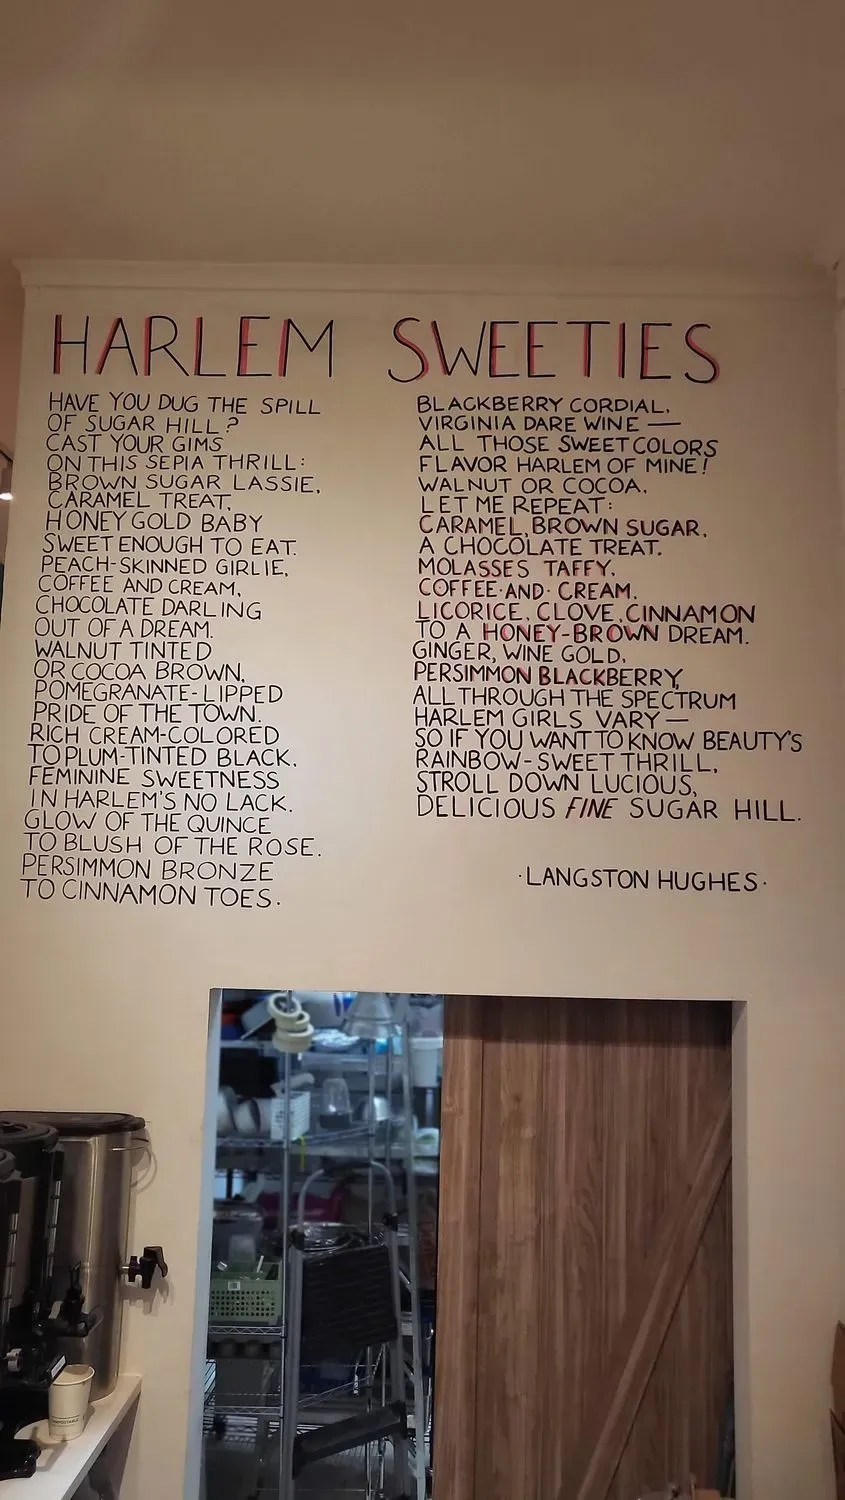 HARLEM SWEETIES
HAVE YOU DUG THE SPILL
OF SUGAR HILL?
CAST YOUR GIMS
ON THIS SEPIA THRILL:
BROWN SUGAR LASSIE,
CARAMEL TREAT,
HONEY GOLD BABY
SWEET ENOUGH TO EAT.
PEACH-SKINNED GIRLIE,
COFFEE AND CREAM,
CHOCOLATE DARLING
OUT OF A DREAM.
WALNUT TINTED
OR COCOA BROWN,
POMEGRANATE-LIPPED
PRIDE OF THE TOWN.
RICH CREAM-COLORED
TO PLUM-TINTED BLACK,
FEMININE SWEETNESS
IN HARLEM'S NO LACK.
GLOW OF THE QUINCE
TO BLUSH OF THE ROSE.
PERSIMMON BRONZE
TO CINNAMON TOES.
BLACKBERRY CORDIAL,
VIRGINIA DARE WINE —
ALL THOSE SWEET COLORS
FLAVOR HARLEM OF MINE!
WALNUT OR COCOA,
LET ME REPEAT:
CARAMEL, BROWN SUGAR,
A CHOCOLATE TREAT.
MOLASSES TAFFY,
COFFEE·AND·CREAM,
LICORICE, CLOVE, CINNAMON
TO A HONEY-BROWN DREAM.
GINGER, WINE GOLD,
PERSIMMON BLACKBERRY,
ALL THROUGH THE SPECTRUM
HARLEM GIRLS VARY —
SO IF YOU WANT TO KNOW BEAUTY'S
RAINBOW-SWEET THRILL,
STROLL DOWN LUCIOUS,
DELICIOUS FINE SUGAR HILL.
·LANGSTON HUGHES·